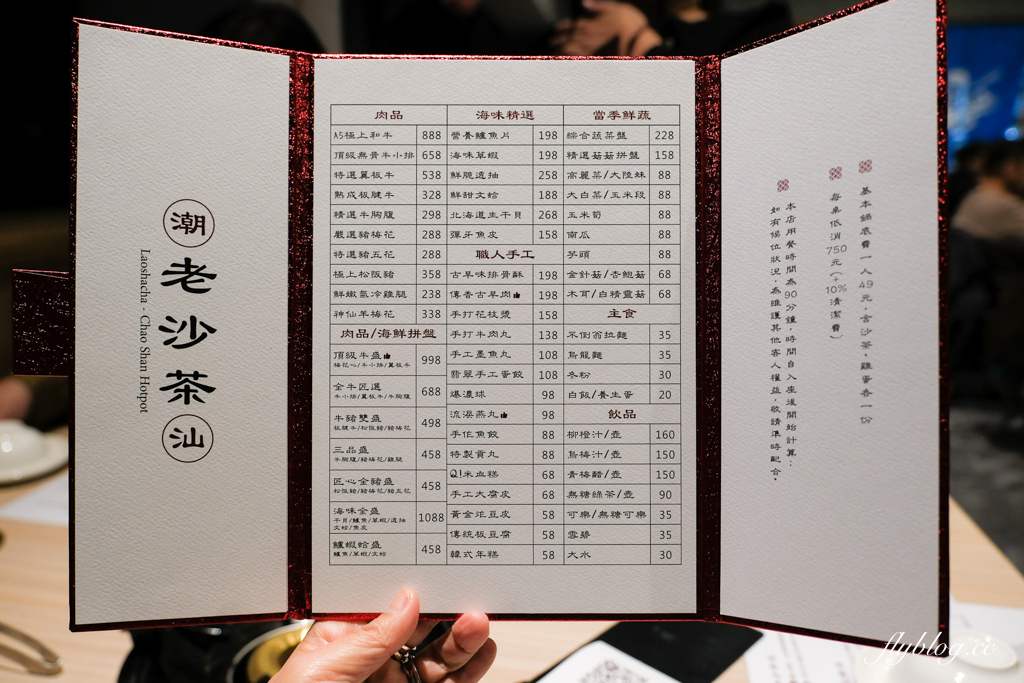 潮
老沙茶
汕
Laoshacha - Chao Shan Hotpot
肉品
A5極上和牛 888
頂級無骨牛小排 658
特選翼板牛 538
熟成板腱牛 328
精選牛胸腹 298
嚴選豬梅花 288
特選豬五花 288
極上松阪豬 358
鮮嫩氣冷雞腿 238
神仙羊梅花 338
肉品/海鮮拼盤
頂級牛盛 998
梅花心/牛小排/翼板牛
全牛匠選 688
牛小排/翼板牛/牛胸腹
牛豬雙盛 498
板腱牛/松阪豬/豬梅花
三品盛 458
牛胸腹/豬梅花/雞腿
匠心全豬盛 458
松阪豬/豬梅花/豬五花
海味全盛 1088
干貝/鱸魚/草蝦/透抽
文蛤/魚皮
鱸蝦蛤盛 458
鱸魚/草蝦/文蛤
海味精選
營養鱸魚片 198
海味草蝦 198
鮮脆透抽 258
鮮甜文蛤 188
北海道生干貝 268
彈牙魚皮 158
職人手工
古早味排骨酥 198
傳香古早肉 198
手打花枝漿 158
手打牛肉丸 138
手工墨魚丸 108
翡翠手工蛋餃 108
爆濃球 98
流淚燕丸 98
手作魚餃 88
特製貢丸 88
Q!米血糕 68
手工大腐皮 68
黃金炸豆皮 58
傳統板豆腐 58
韓式年糕 58
當季鮮蔬
綜合蔬菜盤 228
精選菇菇拼盤 158
高麗菜/大陸妹 88
大白菜/玉米段 88
玉米筍 88
南瓜 88
芋頭 88
金針菇/杏鮑菇 68
木耳/白精靈菇 68
主食
不倒翁拉麵 35
烏龍麵 35
冬粉 30
白飯/養生蛋 20
飲品
柳橙汁/壺 160
烏梅汁/壺 150
青梅醋/壺 150
無糖綠茶/壺 90
可樂/無糖可樂 35
雪碧 35
大水 30
基本鍋底費一人49元，含沙茶，雞蛋各一份
每桌低消750元(+10%清潔費)
本店用餐時間為90分鐘，時間自入座後開始計算；
如有候位狀況，為維護其他客人權益，敬請準時配合。
flyblog.cc